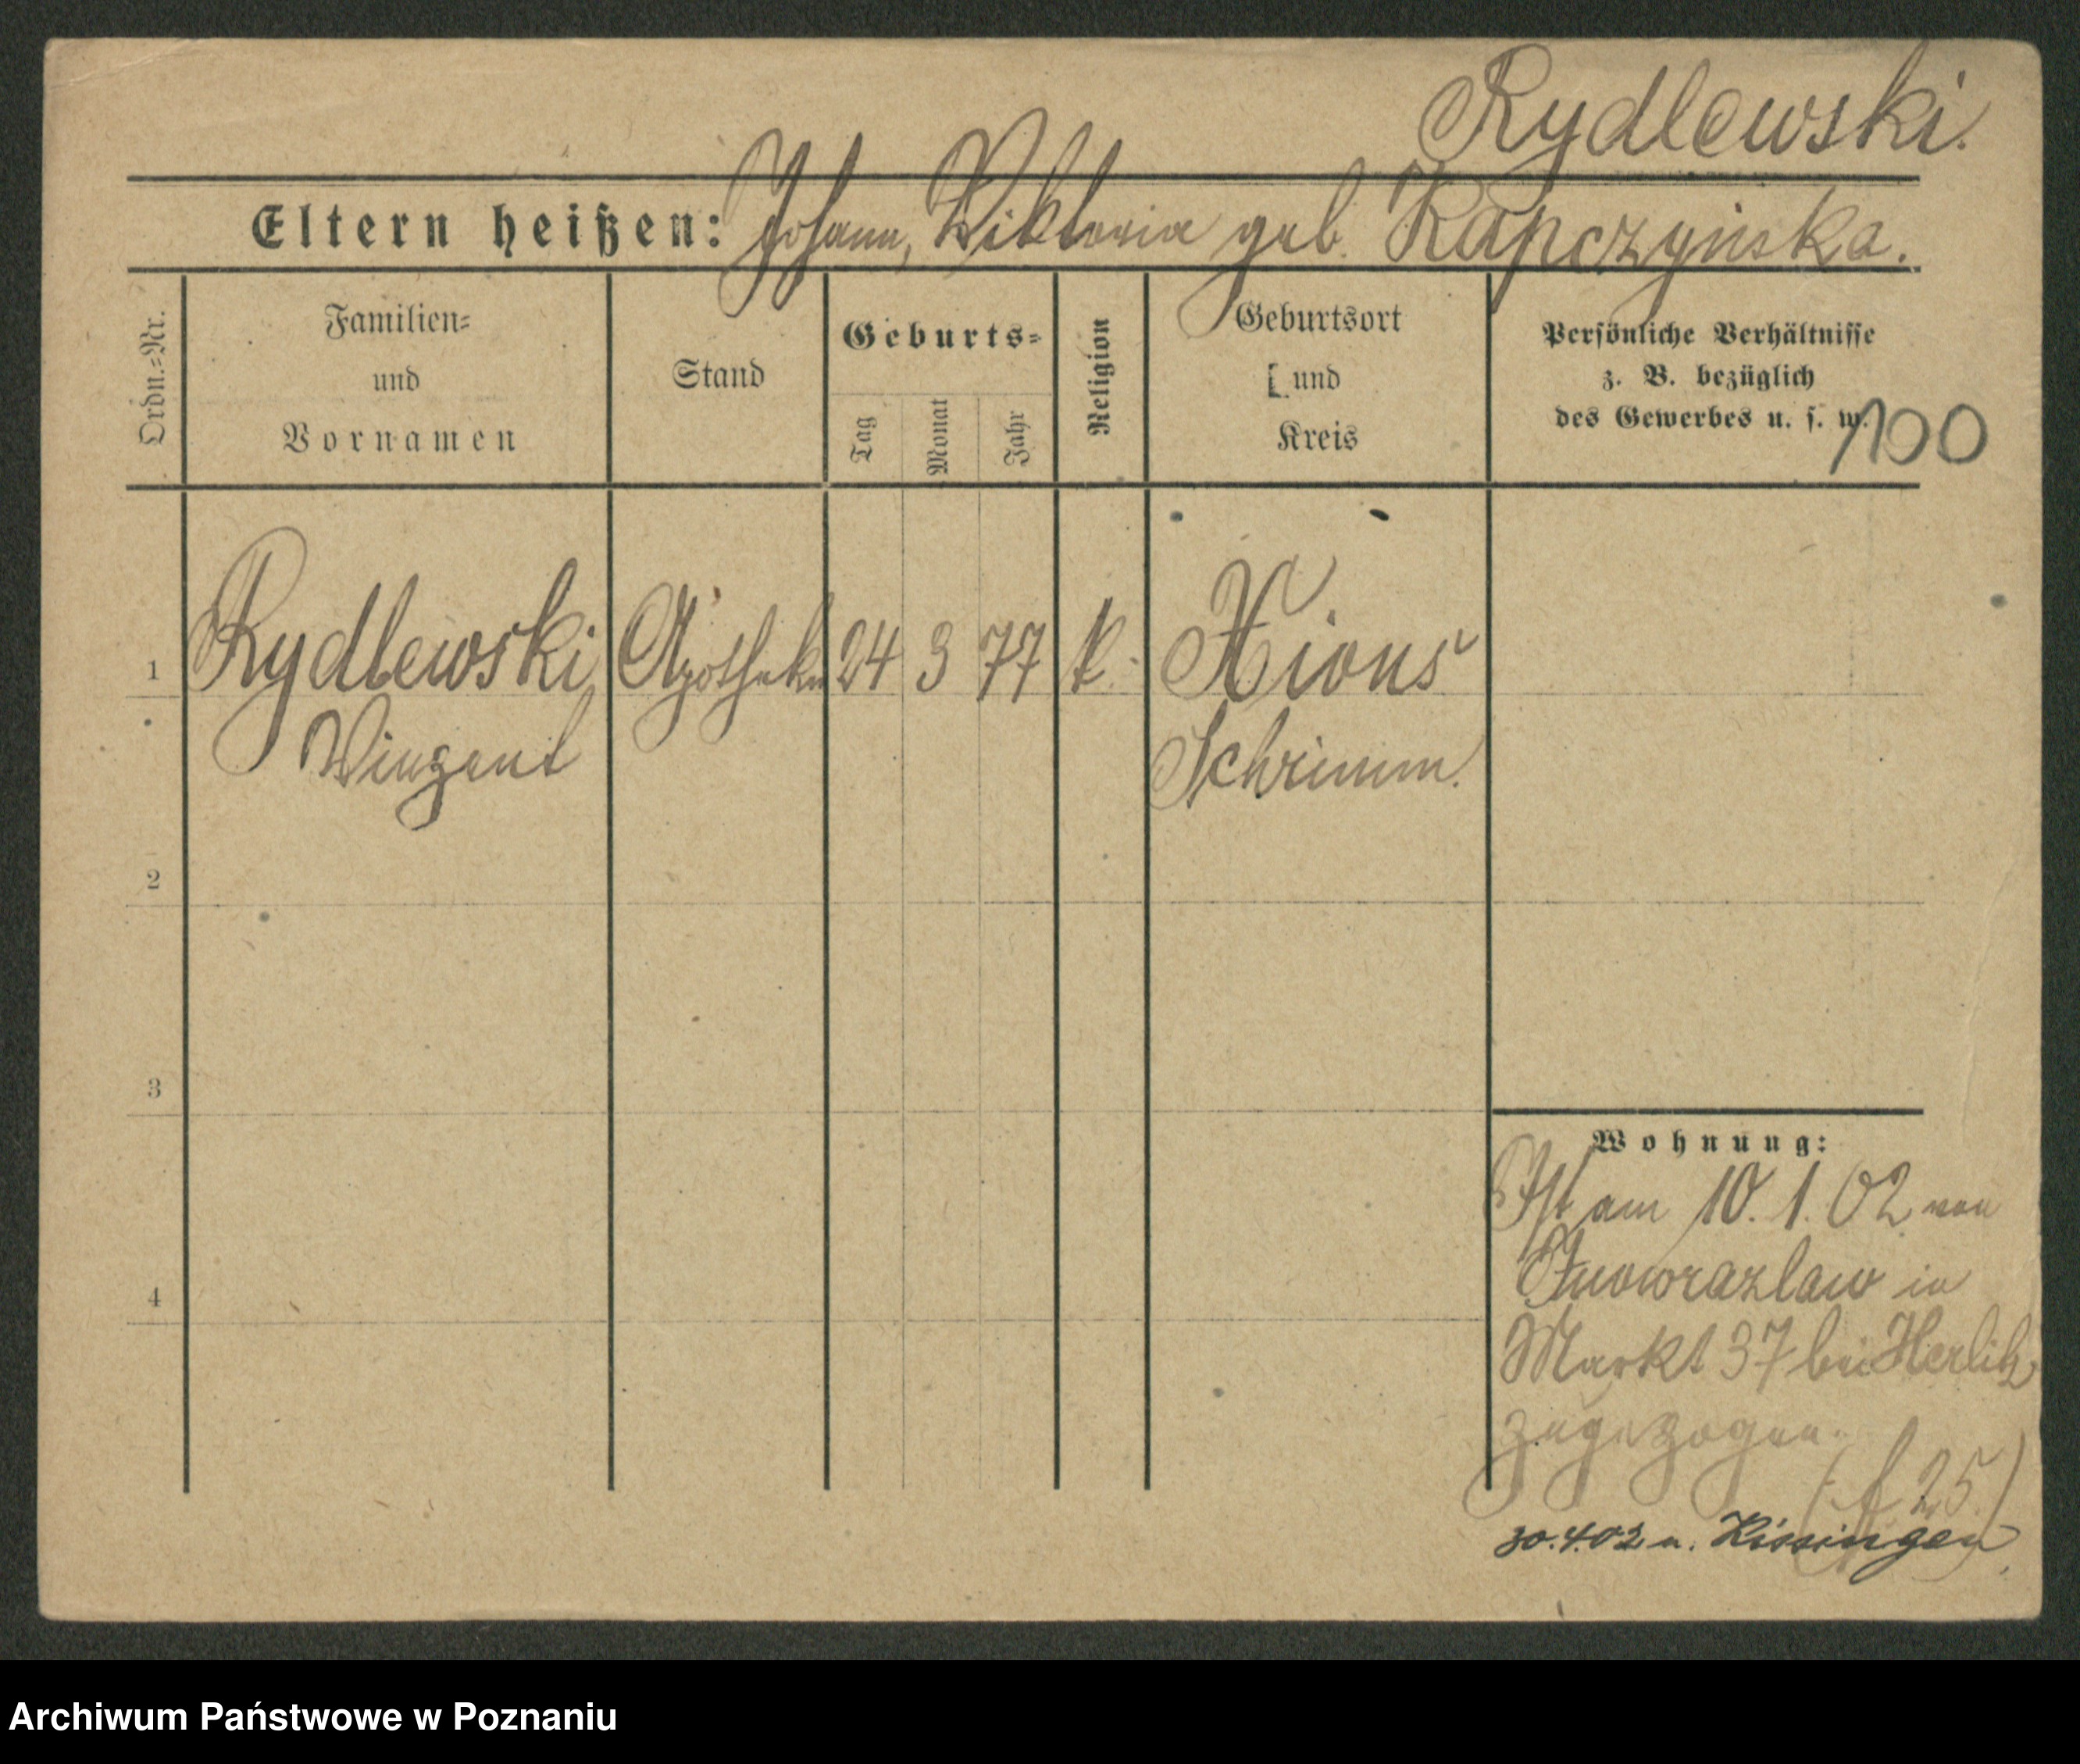 Rydlewski.
Eltern heißen: Johann, Viktoria geb. Kapczyńska.
Ordn.=Nr.
Familien=
und
Vornamen
Stand
Geburts=
Tag
Monat
Jahr
Religion
Geburtsort
[ und
Kreis
Persönliche Verhältnisse
z. B. bezüglich
des Gewerbes u. s. w.
100
1 Rydlewski Apotheker 24 3 77 k. Xions
Vinzent Schrimm.
2
3
4
Wohnung:
Ist am 10. 1. 02 von
Inowrazlaw in
Markt 37 bei Herlitz
zugezogen.
(f 25)
30.4.02 n. Kissingen
Archiwum Państwowe w Poznaniu